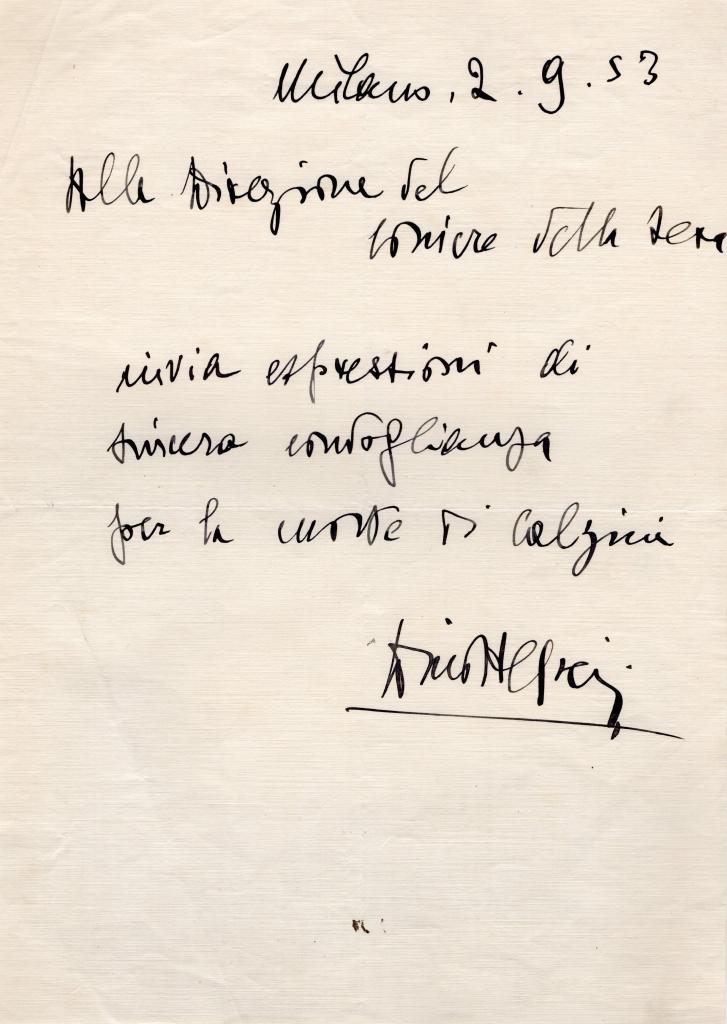 Milano, 2. 9. 53
Alla Direzione del
Corriere della Sera
invia espressioni di
sincera condoglianza
per la morte di Calzini
Dino Alfieri